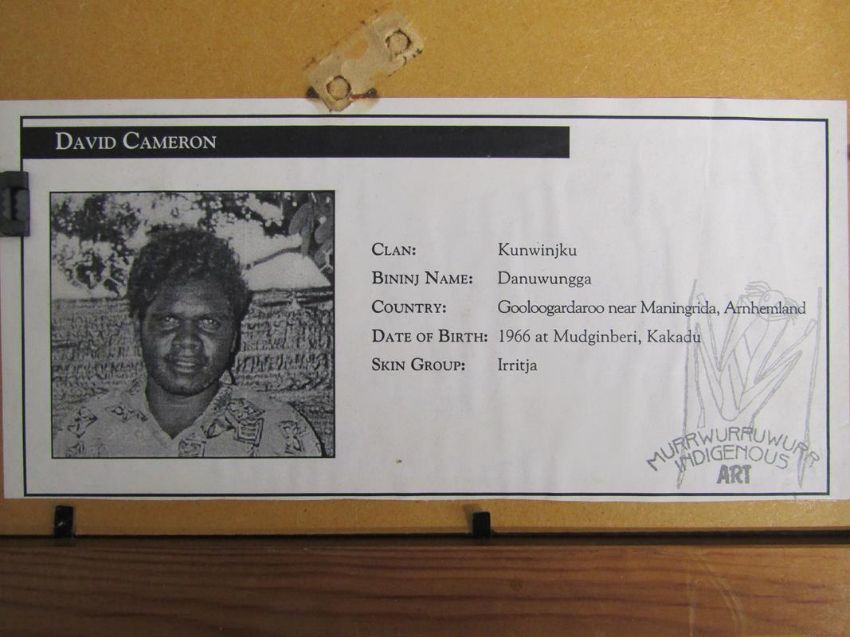 David Cameron
Clan: Kunwinjku
Bininj Name: Danuwungga
Country: Gooloogardaroo near Maningrida, Arnhemland
Date of Birth: 1966 at Mudginberi, Kakadu
Skin Group: Irritja
MURRWURRUWURR
INDIGENOUS
ART